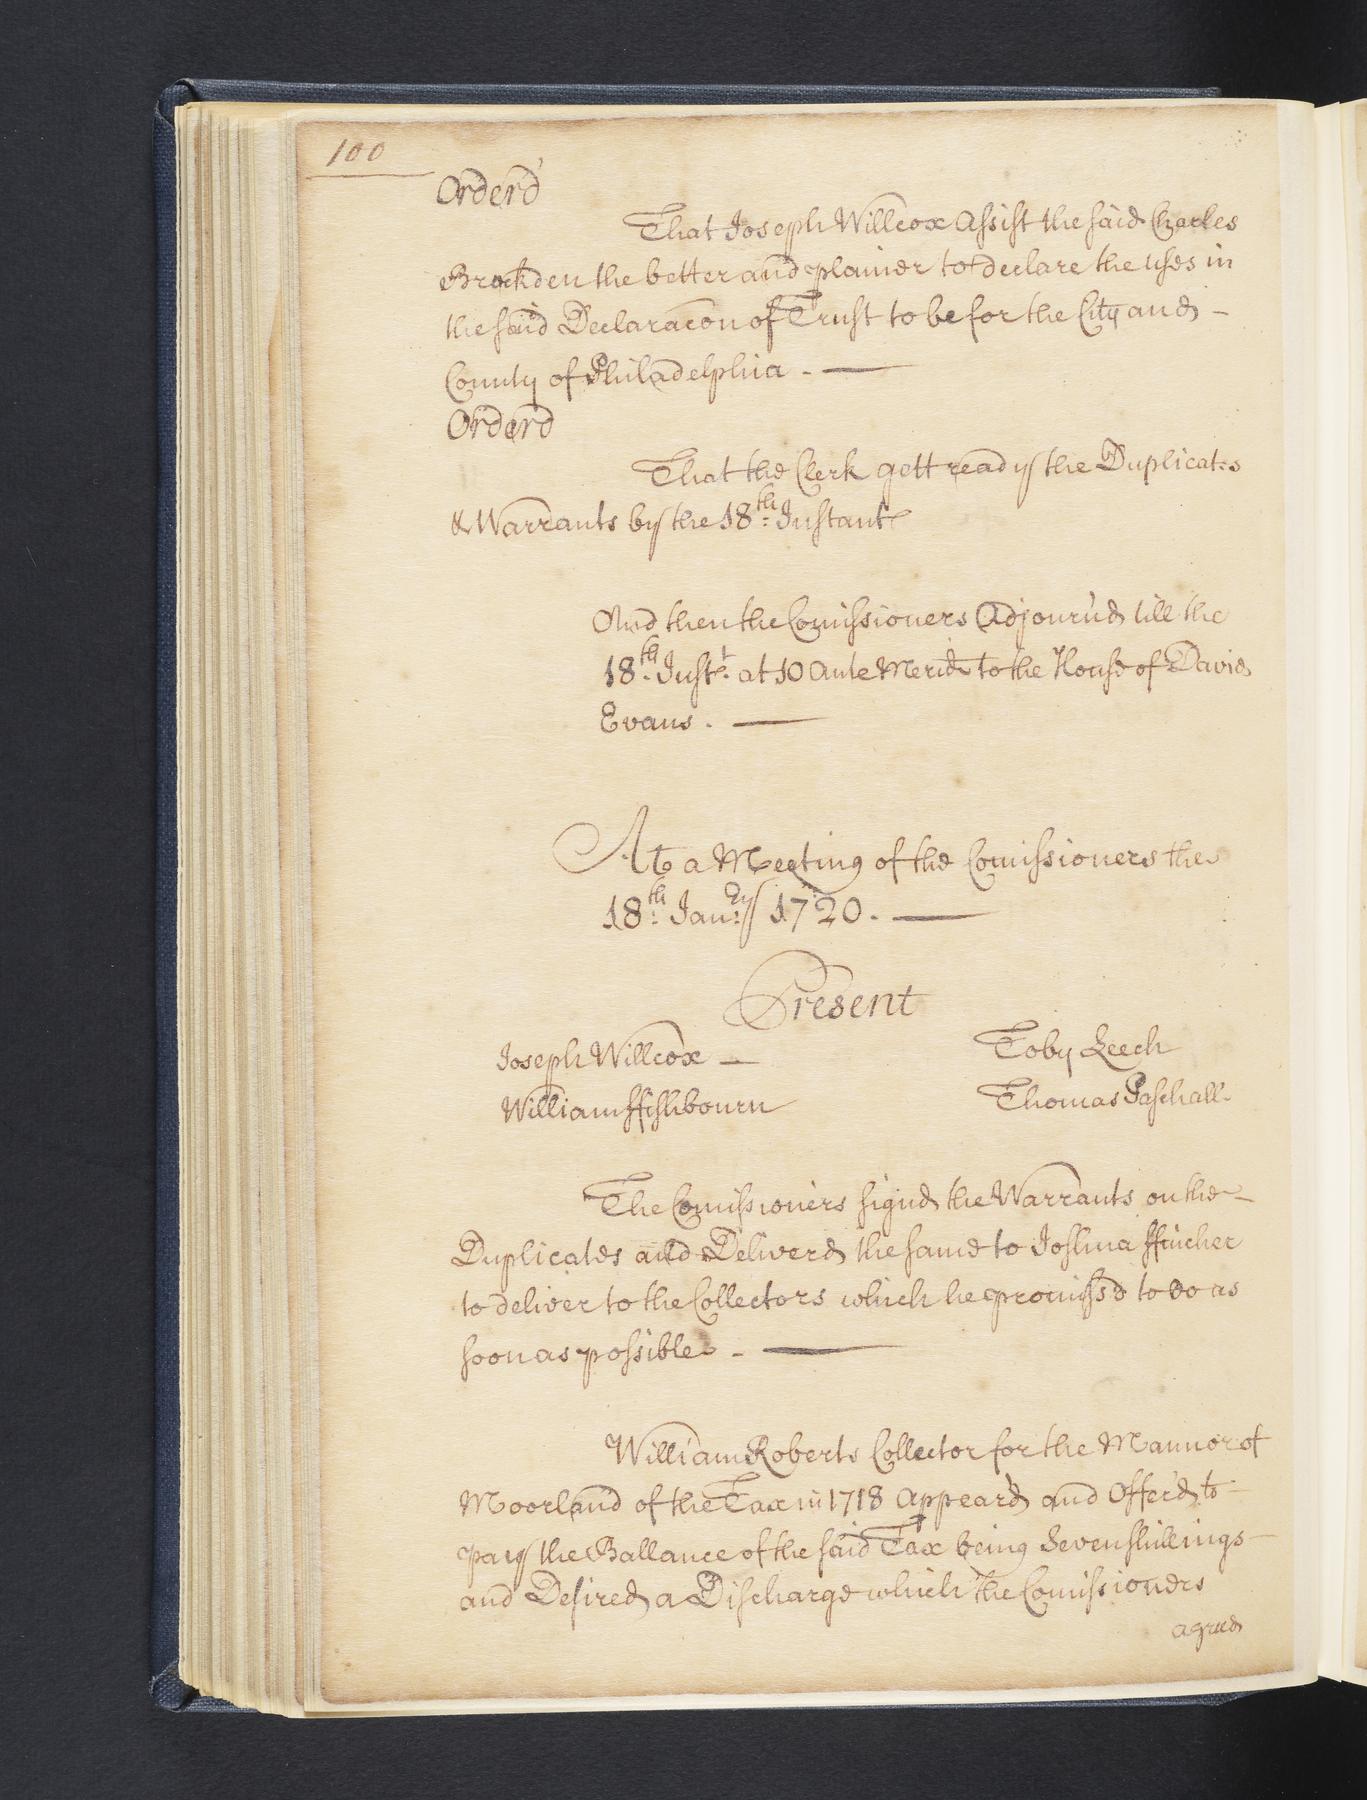 100
Orderd
That Joseph Willcox Assist the said Charles
Brockden the better and plainer to declare the uses in
the said Declaracon of Trust to be for the City and -
County of Philadelphia . —
Orderd
That the Clerk gett ready the Duplicates
& Warrants by the 18th: Instant
And then the Comissioners Adjourn'd till the
18th. Instt. at 10 Ante Merid: to the House of David
Evans . —
At a Meeting of the Comissioners the
18th: Janry: 1720. —
Present
Joseph Willcox —
Toby Leech
William ffishbourn
Thomas Paschall
The Comissioners signd the Warrants on the -
Duplicates and Deliverd the same to Joshua ffincher
to deliver to the Collectors which he promissd to do as
soon as possible . —
William Roberts Collector for the Mannor of
Moorland of the Tax in 1718 Appear'd and Offerd to -
pay the Ballance of the said Tax being Seven shillings -
and Desired a Discharge which the Comissioners
agreed